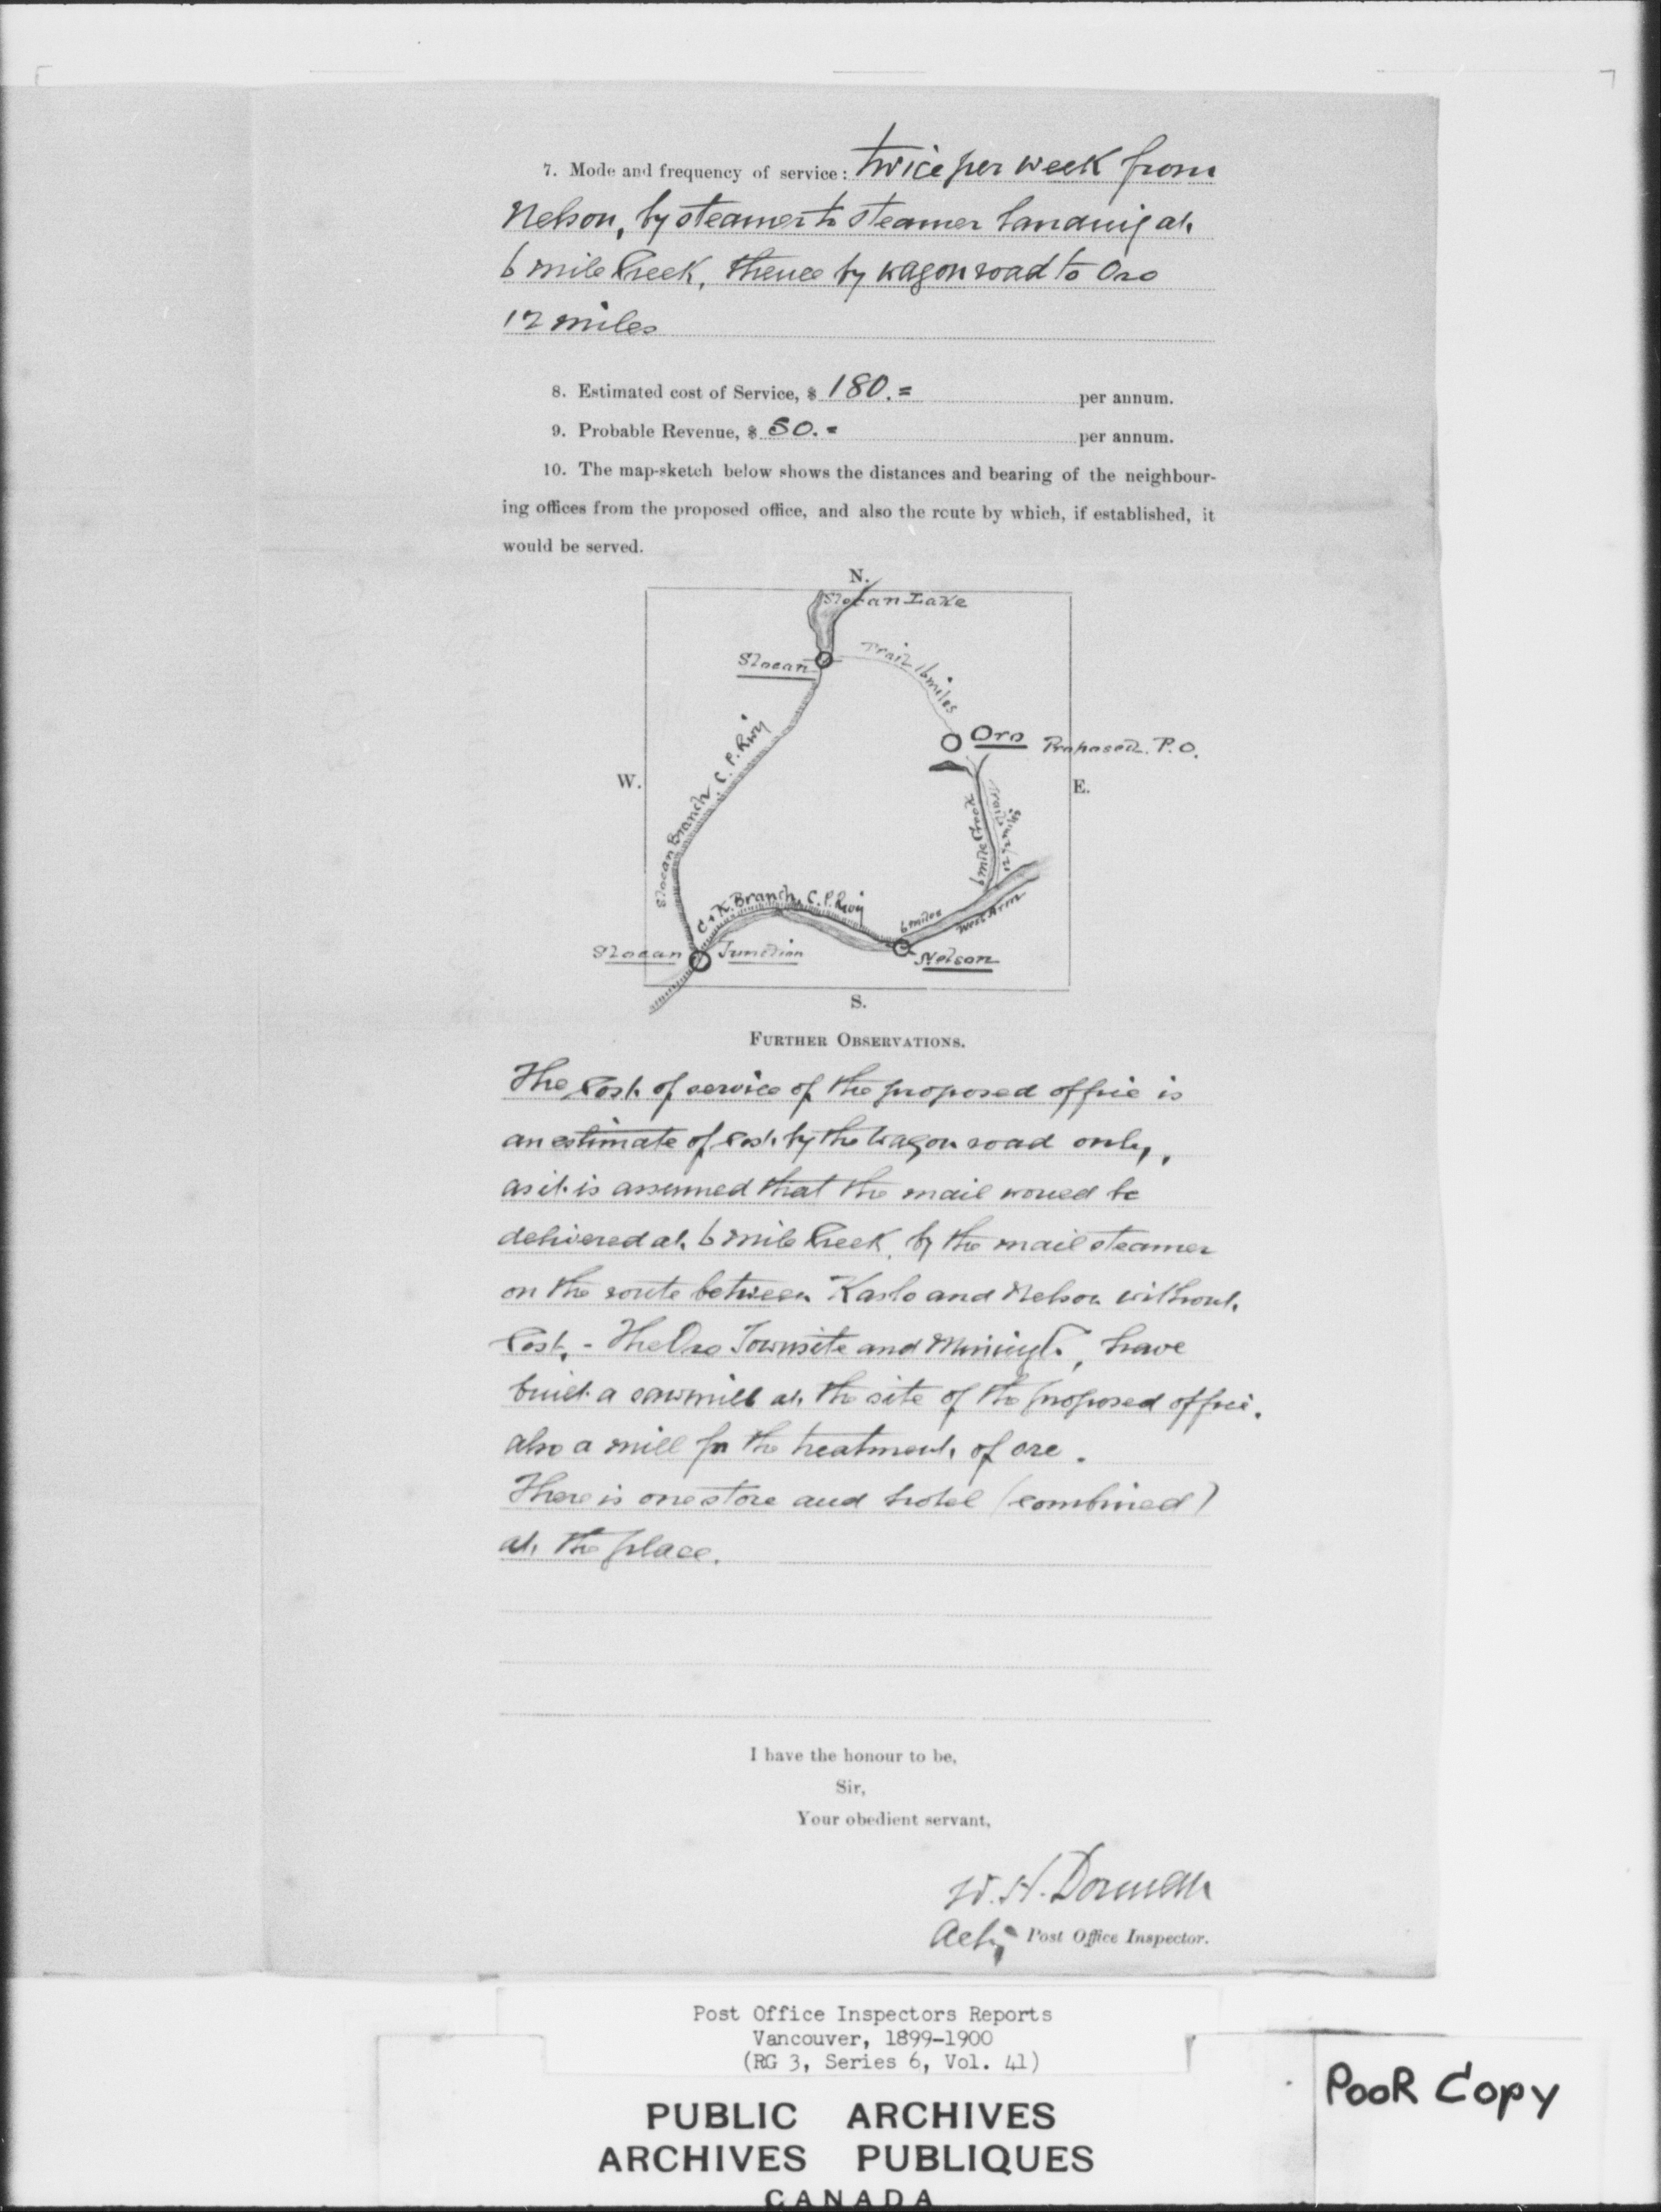 7. Mode and frequency of service: twice per week from
Nelson, by steamer to steamer landing at
6 mile Creek, thence by wagon road to Oro
12 miles
8. Estimated cost of Service, $ 180.= per annum.
9. Probable Revenue, $ 50.= per annum.
10. The map-sketch below shows the distances and bearing of the neighbour-
ing offices from the proposed office, and also the route by which, if established, it
would be served.
N.
Slocan Lake
Slocan
Trail 16 miles
Oro Proposed P.O.
Slocan Branch C.P. Rwy
W.
E.
6 mile Creek
trail
12 miles
C & K. Branch, C.P. Rwy
6 miles
West Arm
Slocan Junction
Nelson
S.
FURTHER OBSERVATIONS.
The Cost of service of the proposed office is
an estimate of Cost by the Wagon road only,
as it is assumed that the mail would be
delivered at 6 mile Creek, by the mail steamer
on the route between Kaslo and Nelson without
Cost. - The Oro Townsite and Mining Co, have
built a sawmill at the site of the proposed office.
also a mill for the treatment of ore.
There is one store and hotel (combined)
at the place.
I have the honour to be,
Sir,
Your obedient servant,
W. H. Dorman
Actg Post Office Inspector.
Post Office Inspectors Reports
Vancouver, 1899-1900
(RG 3, Series 6, Vol. 41)
PUBLIC ARCHIVES
ARCHIVES PUBLIQUES
CANADA
POOR COPY